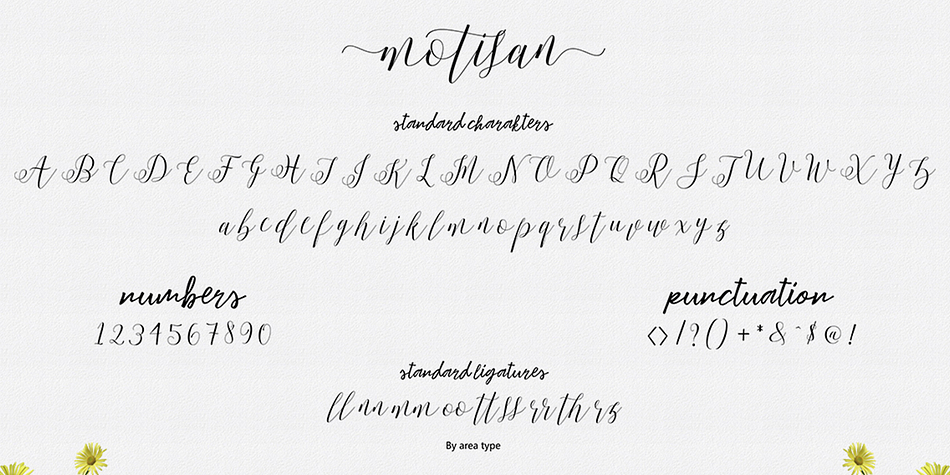 motisan
standard charakters
A B C D E F G H I J K L M N O P Q R S T U V W X Y Z
a b c d e f g h i j k l m n o p q r s t u v w x y z
numbers
1 2 3 4 5 6 7 8 9 0
punctuation
< > / ? ( ) + * & ^ $ @ !
standard ligatures
ll nn mm oo tt ss rr th rz
By area type